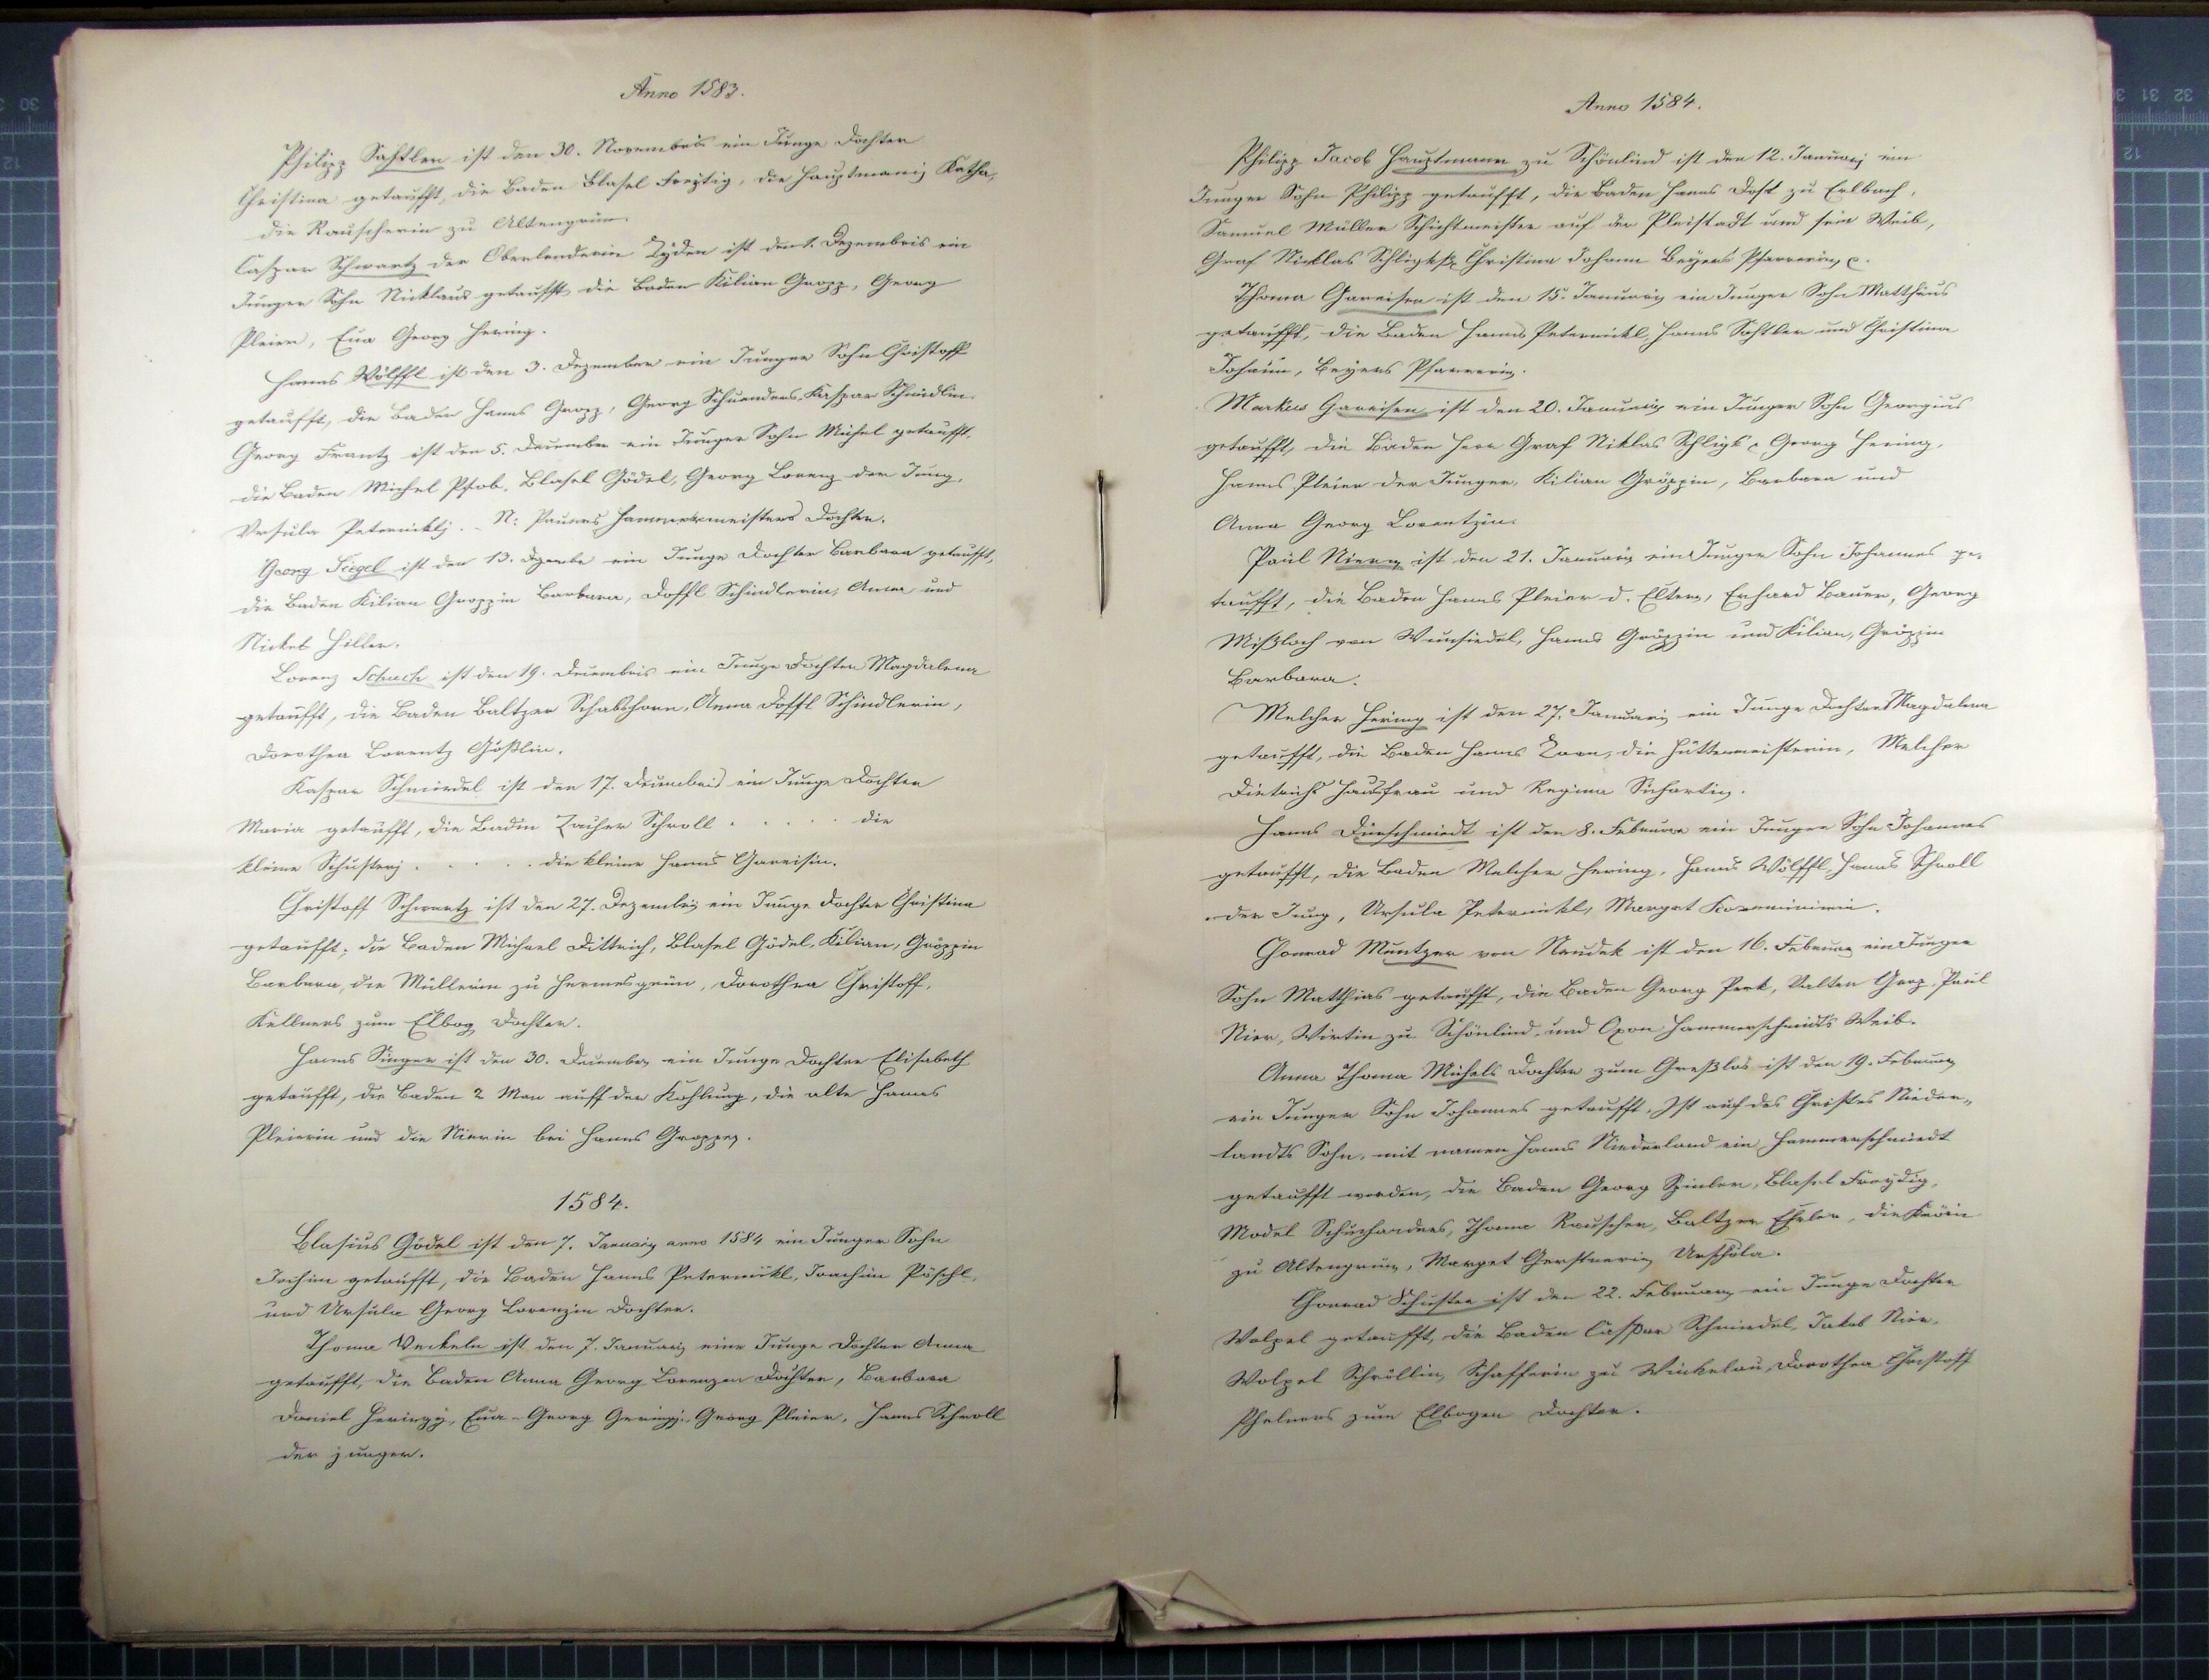 Anno 1583.
Philipp Sahtler ist den 30. Novembris ein Junge Dochter
Christina getaufft, die Baden Blasel Freytig, die Hauptmanij Katha,
die Rauscherin zu Altengrün.
Caspar Schwartz der Oberlenderin Eyden ist den 1. Dezembris ein
Junger Sohn Nicklaus getaufft, die Baden Kilian Gropp, Georg
Pleier, Eua Georg Hering.
Hanns Wölffl ist den 3. Dezember ein Junger Sohn Christoff
getaufft, die Baden Hanns Gropp, Georg Kaspar Schmidlin.
Georg Frantz ist den 5. December ein Junger Sohn Michel getaufft,
die Baden Michel Pfob, Blasel Gödel, Georg Lorenz der Jung,
Vrsula Peterniklj. N: Pauers Hammermeisters Dochter.
Georg Siegel ist den 13. Dezembe ein Junge Dochter Barbara getaufft,
die Baden Kilian Groppin Barbara, Doffl Schindlerin, Anna und
Nickel Hiller.
Lorenz Schuch ist den 19. Decembris ein Junge Dochter Magdalena
getaufft, die Baden Baltzer Schabhorn, Anna Doffl Schindlerin,
Dorothea Lorentz Gößlin.
Kaspar Schmiedel ist den 17. Decembris ein Junge Dochter
Maria getaufft, die Badin Zacher Schroll . . . . . die
kleine Schusterj . . . . . die kleine Hanns Gareisin.
Christoff Schwartz ist den 27. Dezembris ein Junge Dochter Christina
getaufft; die Baden Michael Dittrich, Blasel Gödel, Kilian, Gröppin
Barbara, die Müllerin zu Hermesgrün, Dorothea Christoff,
Kellners zum Elbog Dochter.
Hanns Singer ist den 30. December ein Junge Dochter Elisabeth
getaufft, die Baden 2 Man auff der Kohlung, die alte Hanns
Pleierin und die Nierin bei Hanns Groppen.
1584.
Blasius Gödel ist den 7. Januarij anno 1584 ein Junger Sohn
Jochim getaufft, die Baden Hanns Peternikl, Joachim Pöschl,
und Ursula Georg Lorenzin Dochter.
Thoma Veckeln ist den 7. Januarij eine Junge Dochter Anna
getaufft, die Baden Anna Georg Lorenzen Dochter, Barbara
Daniel Heringij, Eua Georg Geringj, Georg Pleier, Hanns Schroll
der junger.
Anno 1584.
Philipp Jacob Hauptmann zu Schönlind ist den 12. Januarj ein
Junger Sohn Philipp getaufft, die Baden Hanns Dost zu Erlbach,
Samuel Müller Schichtmeister auf der Pleistadt und sein Weib,
Graf Nicklas Schligk, Christina Johann Beyers Pfarrerin c.
Thoma Gareisen ist den 15. Januarij ein Junger Sohn Matthäus
getaufft, die Baden Hanns Peternikl, Hanns Sahtler und Christina
Johann, Beyers Pfarrerin.
Markus Gareisen ist den 20. Januarij ein Junger Sohn Georgius
getaufft, die Baden Herr Graf Niklas Schligk c Georg Hering,
Hanns Pleier der Junger, Kilian Gröppin, Barbara und
Anna Georg Lorentzin.
Paul Niern ist den 21. Januarij ein Junger Sohn Johannes ge-
taufft, die Baden Hanns Pleier d. Eltern, Erhard Bauer, Georg
Mißloch von Wunsiedel, Hanns Gröppin und Kilian, Gröppin
Barbara.
Melcher Hering ist den 27. Januarij ein Junge Dochter Magdalena
getaufft, die Baden Hanns Zorn, die Hüttemeisterin, Melcher
Dietrichs Hausfrau und Regina Sichartin.
Hanns Dürschmiedt ist den 8. Februar ein Junger Sohn Johannes
getaufft, die Baden Melcher Hering, Hanns Wölffl, Hanns Schroll
der Jung, Ursula Peternikl, Marget
Chonrad Muntzer von Neudek ist den 16. Februar ein Junger
Sohn Matthias getaufft, die Baden Georg Perk, Valten Gorg, Paul
Nier, Wirtin zu Schönlind, und Hammerschmidts Weib.
Anna Thoma Michels Dochter zum Greßlos ist den 19. Februar
ein Junger Sohn Johannes getaufft. Ist auf des Christes Nieder-
landts Sohn, mit namen Hanns Niederland ein Hammerschmiedt
getaufft worden, die Baden Georg Spinler, Blasel Freydig,
Model Schuhanders, Thoma Rauscher, Baltzer Ehrler, die
zu Altengrün, Marget Gerstnerin Urschula.
Chonrad Schuster ist den 22. Februar ein Junge Dochter
Wolpel getaufft, die Baden Caspar Schmiedel, Jakob Nier,
Wolpel Schröllin, Schafferin zu Winkelau, Dorothea Christoff
Phelners zum Elbogen Dochter.